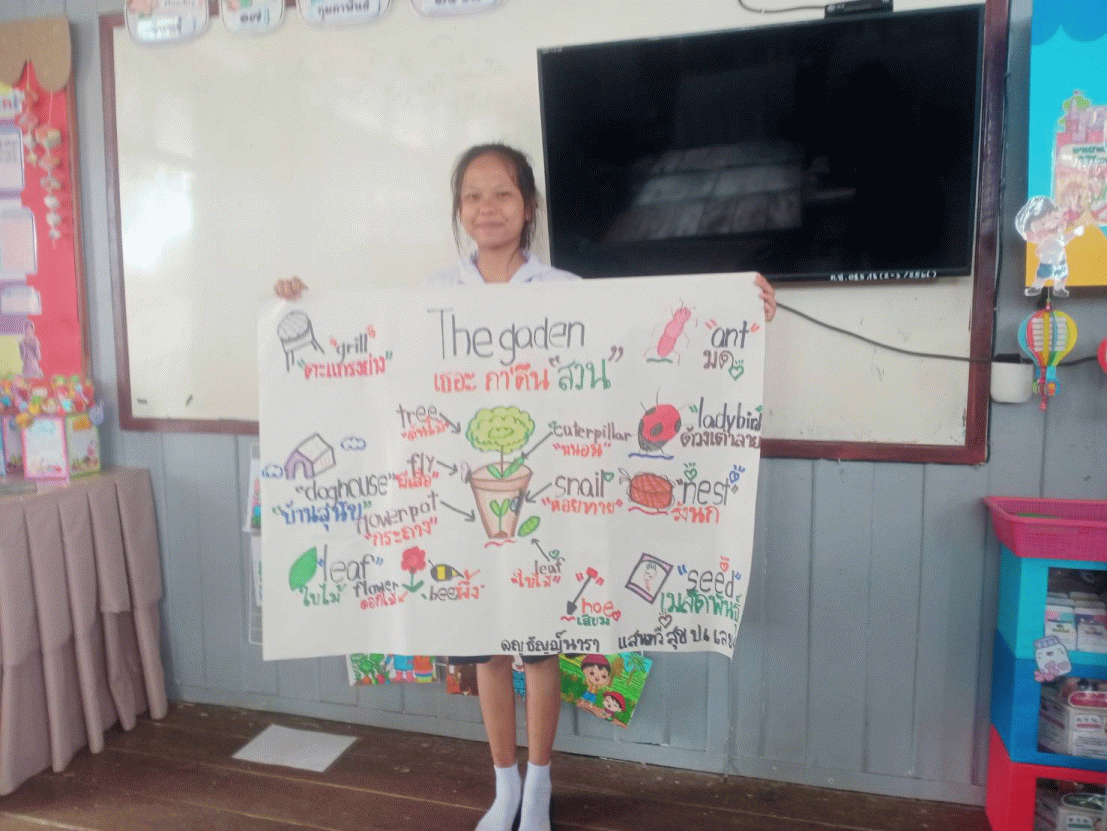 กุมภาพันธ์
The gaden
เธอะ กา'ดึน "สวน"
"grill"
"ตะแกรงย่าง"
"ant"
มด
tree
"ต้นไม้"
caterpillar
"หนอน"
"ladybird"
ด้วงเต่าลาย
fly
"doghouse"
"บ้านสุนัข"
snail
"หอยทาก"
"nest"
รังนก
flowerpot
"กระถาง"
"leaf"
ใบไม้
flower
ดอกไม้
bee
ผึ้ง
leaf
"ใบไม้"
hoe
เสียม
"seed"
เมล็ดพันธุ์